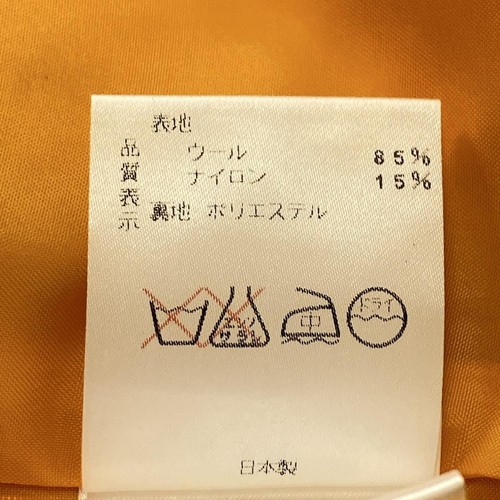 品質表示
表地
ウール 85%
ナイロン 15%
裏地 ポリエステル
エンソ サラシ
中
ドライ
日本製